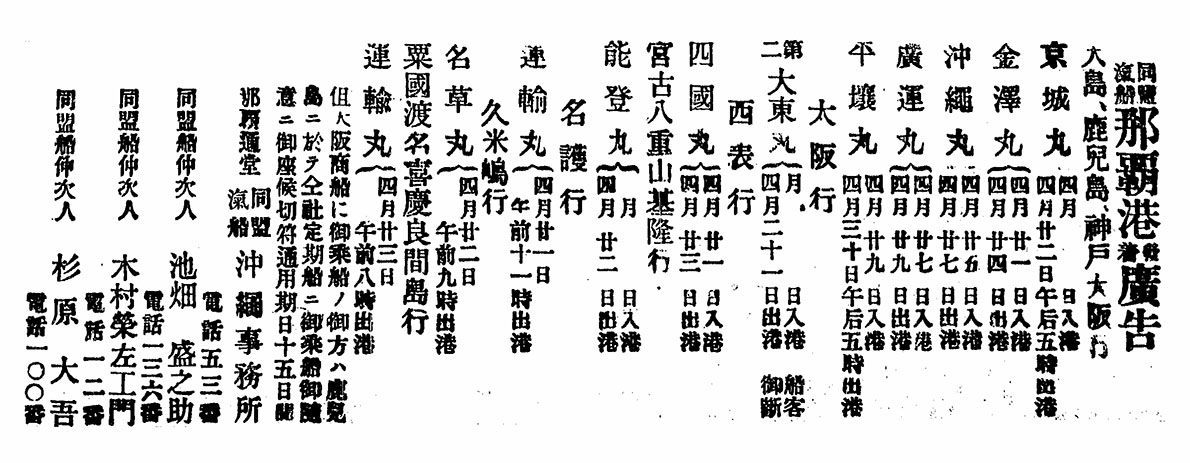 同盟汽船那覇港發着廣告
大島、鹿兒島、神戸大阪行
京城丸 四月 日入港
四月廿二日午后五時出港
金澤丸 四月廿一日入港
四月廿四日出港
沖繩丸 四月廿五日入港
四月廿七日出港
廣運丸 四月廿七日入港
四月廿九日出港
平壤丸 四月廿九日入港
四月三十日午后五時出港
太阪行
第二大東丸 月 日入港 船客
四月二十一日出港 御斷
西表行
四國丸 四月廿一日入港
四月廿三日出港
宮古八重山基隆行
能登丸 月 日入港
四月廿二日出港
名護行
運輸丸 四月廿一日
午前十一時出港
久米嶋行
名草丸 四月廿二日
午前九時出港
粟國渡名喜慶良間島行
運輸丸 四月廿三日
午前八時出港
但大阪商船に御乘船ノ御方ハ鹿兒
島ニ於テ仝社定期船ニ御乘船御隨
意ニ御座候切符通用期日十五日間
那覇通堂 同盟汽船 沖繩事務所
電話五三番
同盟船仲次人 池畑盛之助
電話一三六番
同盟船仲次人 木村榮左工門
電話一二番
同盟船仲次人 杉原大吾
電話一〇〇番